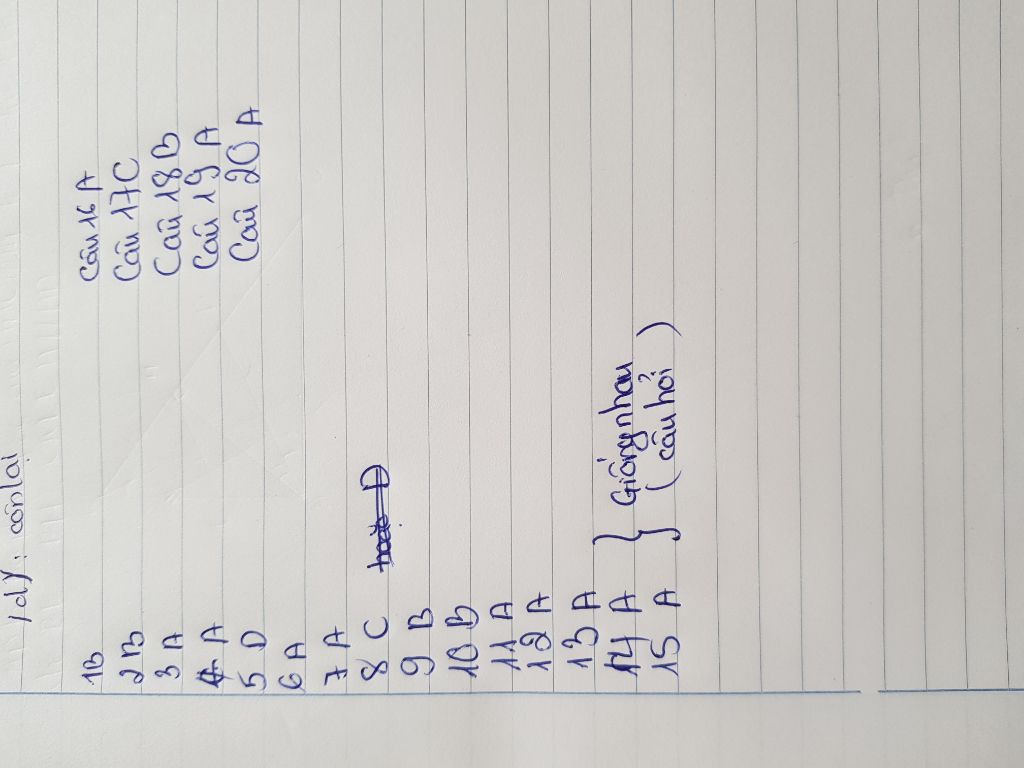 1dy: còn lại
1B
2B
3 A
4 A
5 D
6 A
7 A
8 C
9 B
10 B
11 A
12 A
13 A
14 A } Giống nhau
15 A } (câu hỏi)
Câu 16 A
Câu 17C
Câu 18 B
Câu 19 A
Câu 20 A